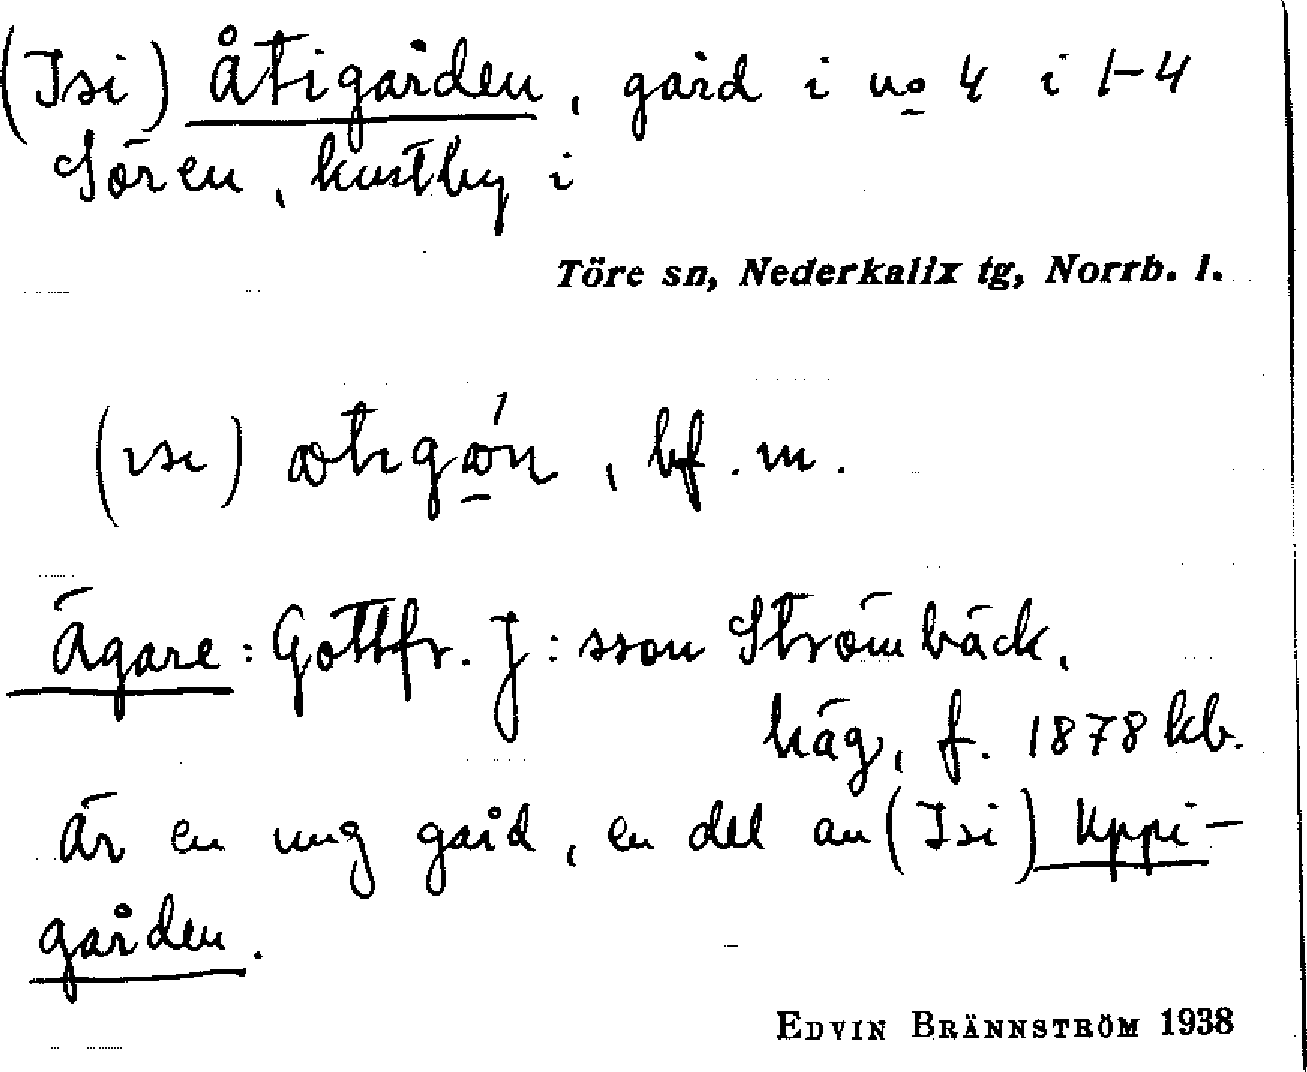 (Isi) Åtigården, gård i no 4 i 1-4
Sören, kustby i
Töre sn, Nederkalix tg, Norrb. l.
(ısı) ɷtıgɷ́n, bf. m.
Ägare: Gottfr. J:sson Strömbäck,
häg, f. 1878 kb.
Är en ung gård, en del av (Isi) Uppi-
gården.
EDVIN BRÄNNSTRÖM 1938